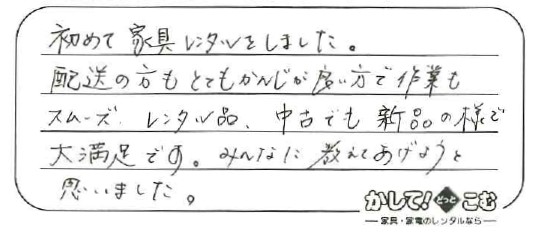 初めて家具レンタルをしました。
配送の方もとてもかんじが良い方で作業も
スムーズ、レンタル品、中古でも新品の様で
大満足です。みんなに教えてあげようと
思いました。
かして!どっとこむ
家具・家電のレンタルなら